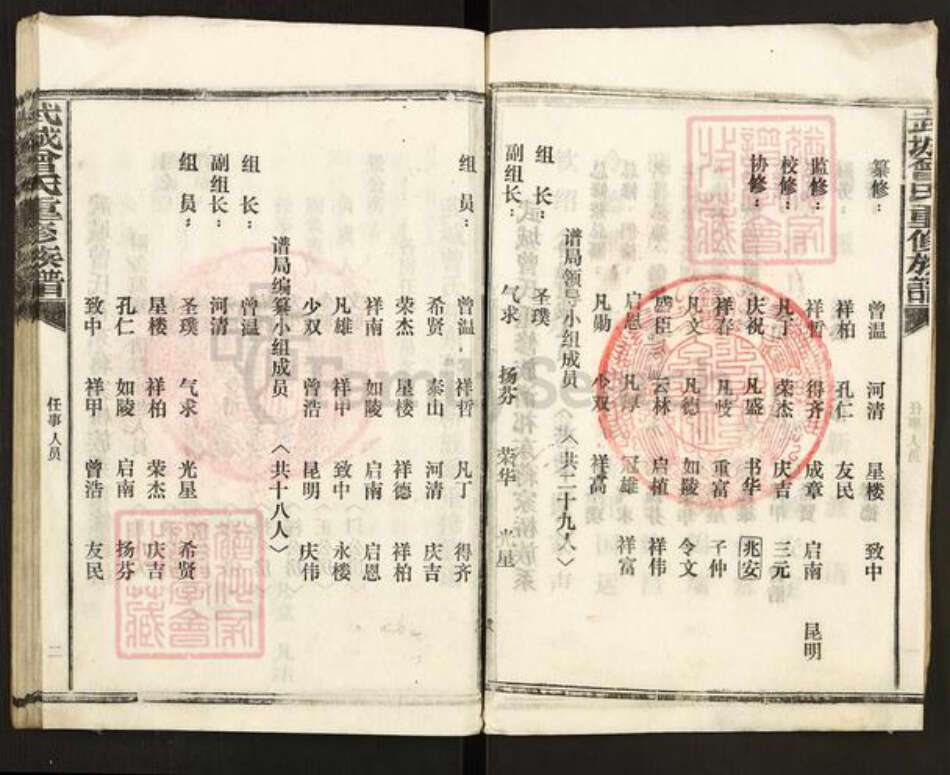 武城曾氏重修族譜
纂修： 曾温 河清 星楼 致中
祥柏 孔仁 友民
监修： 祥哲 得齐 成章 启南 昆明
校修： 凡丁 荣杰 庆吉 三元
协修： 庆祝 凡盛 书华 兆安
祥春 凡 重富 子仲
凡文 凡德 如陵 令文
盛臣 云林 启植 祥伟
启恩 凡厚 冠雄 祥富
凡勋 少双 祥高
谱局领导小组成员 （共二十九人）
组长： 圣璞
副组长： 气求 扬芬 荣华 光星
组员： 曾温 祥哲 凡丁 得齐
希贤 泰山 河清 庆吉
荣杰 星楼 祥德 祥柏
祥南 如陵 启南 启恩
凡雄 祥中 致中 永楼
少双 曾浩 昆明 庆伟
谱局编纂小组成员 （共十八人）
组长： 曾温
副组长： 河清
组员： 圣璞 气求 光星 希贤
星楼 祥柏 荣杰 庆吉
孔仁 如陵 启南 扬芬
致中 祥甲 曾浩 友民
武城曾氏重修族譜
任事人员
二
FamilySearch